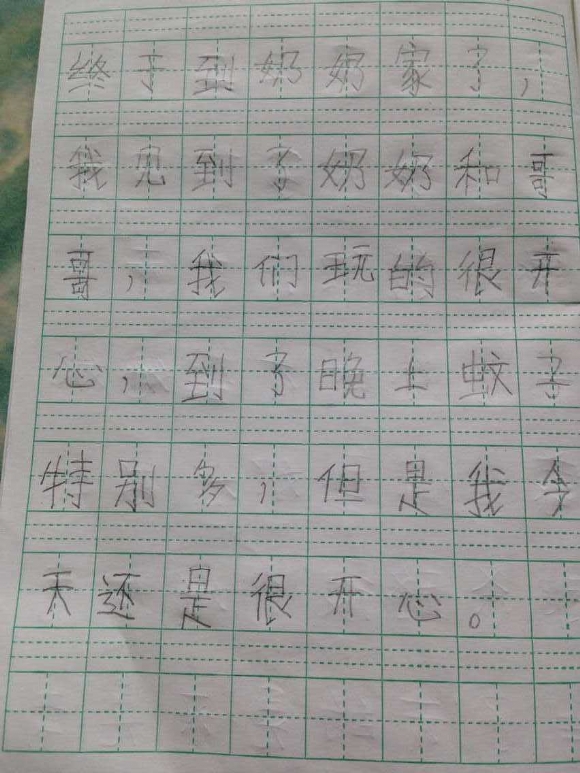 终于到奶奶家了，
我见到了奶奶和哥
哥，我们玩的很开
心，到了晚上蚊子
特别多，但是我今
天还是很开心。